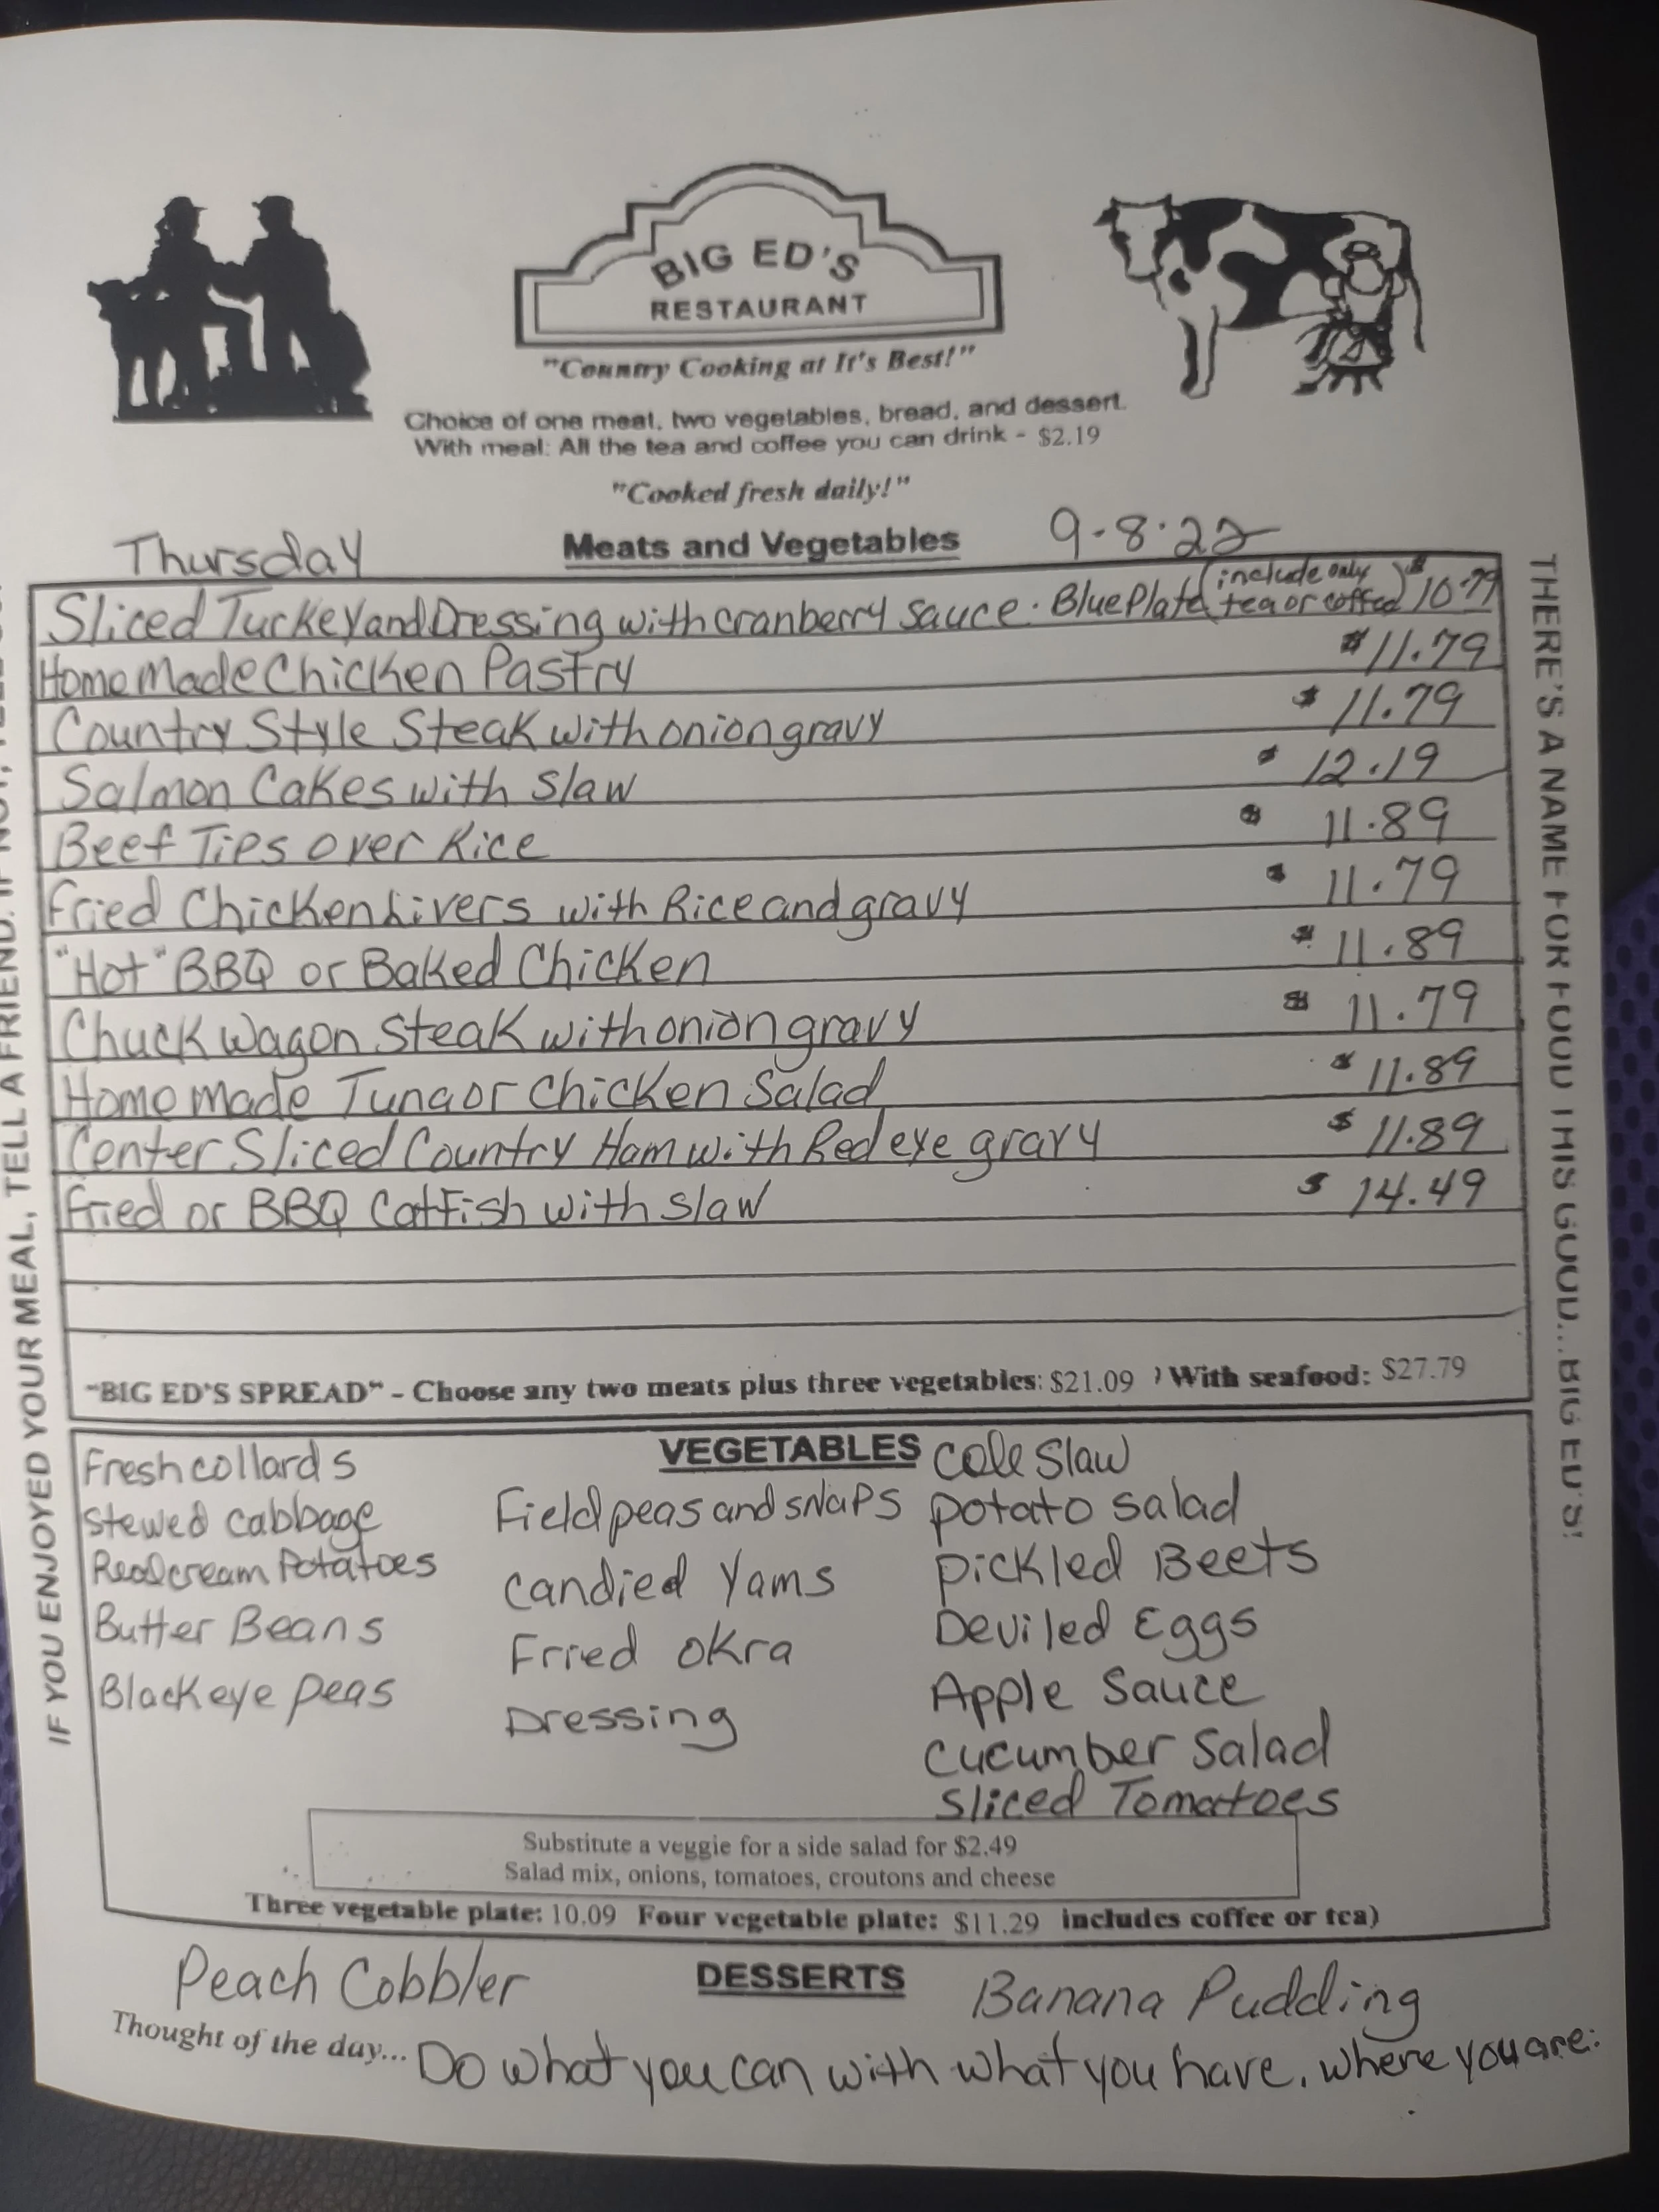 BIG ED'S
RESTAURANT
"Country Cooking at It's Best!"
Choice of one meat, two vegetables, bread, and dessert.
With meal: All the tea and coffee you can drink - $2.19
"Cooked fresh daily!"
Thursday Meats and Vegetables 9-8-22
Sliced Turkey and Dressing with cranberry sauce. Blue Plate (include only tea or coffee) $10.79
Home Made Chicken Pastry $11.79
Country Style Steak with onion gravy $11.79
Salmon Cakes with Slaw $12.19
Beef Tips over Rice $11.89
Fried Chicken Livers with Rice and gravy $11.79
"Hot" BBQ or Baked Chicken $11.89
Chuck Wagon Steak with onion gravy $11.79
Home made Tuna or Chicken Salad $11.89
Center Sliced Country Ham with Red eye gravy $11.89
Fried or BBQ Catfish with slaw $14.49
"BIG ED'S SPREAD" - Choose any two meats plus three vegetables: $21.09 ) With seafood: $27.79
VEGETABLES
Fresh collards
Stewed cabbage
Real cream Potatoes
Butter Beans
Blackeye peas
Field peas and snaps
Candied Yams
Fried Okra
Dressing
Cole Slaw
Potato Salad
Pickled Beets
Deviled Eggs
Apple Sauce
Cucumber Salad
Sliced Tomatoes
Substitute a veggie for a side salad for $2.49
Salad mix, onions, tomatoes, croutons and cheese
Three vegetable plate: 10.09 Four vegetable plate: $11.29 includes coffee or tea)
DESSERTS
Peach Cobbler Banana Pudding
Thought of the day... Do what you can with what you have, where you are.
IF YOU ENJOYED YOUR MEAL, TELL A FRIEND. IF NOT,
THERE'S A NAME FOR FOOD THIS GOOD...BIG ED'S!